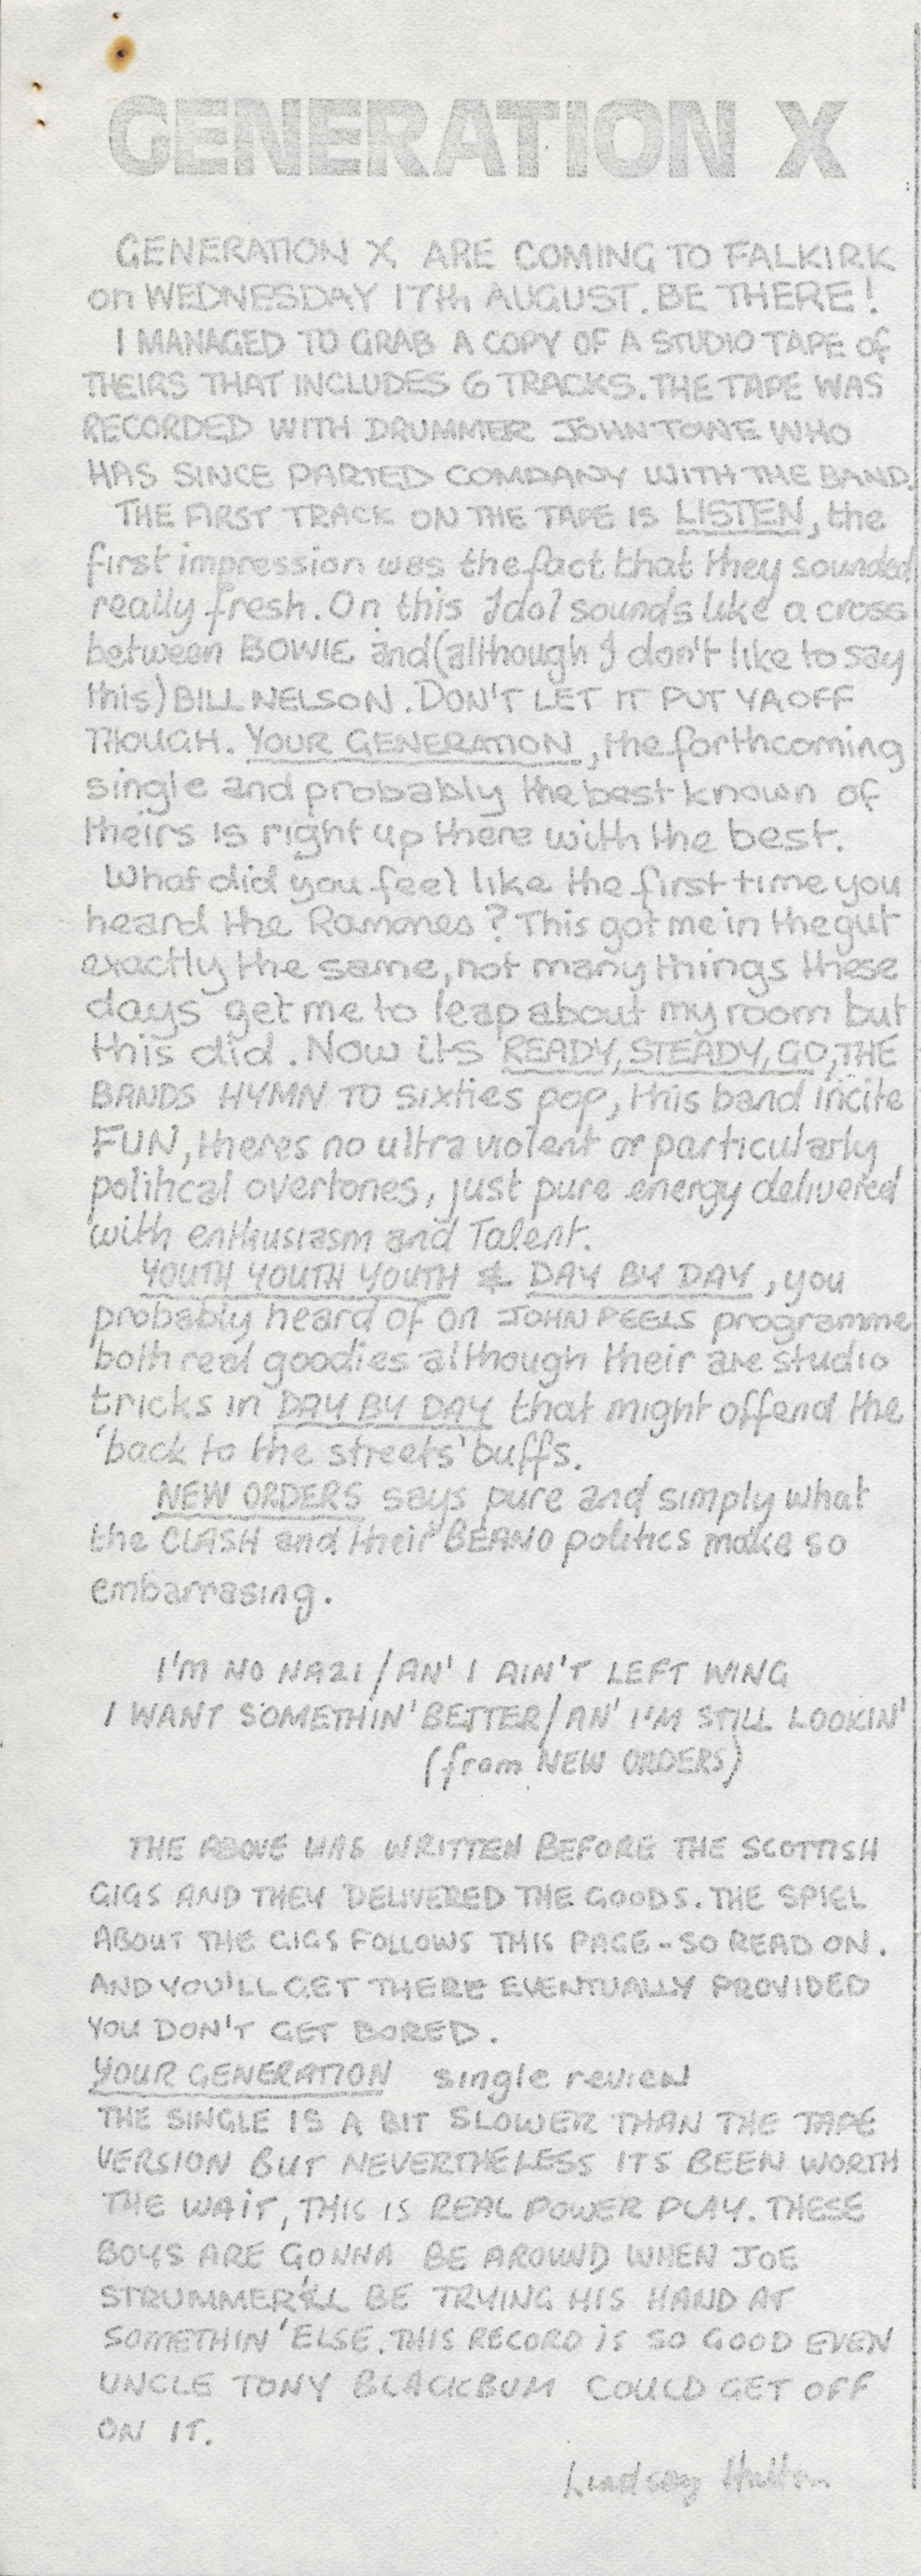 GENERATION X
GENERATION X ARE COMING TO FALKIRK
on WEDNESDAY 17th AUGUST. BE THERE!
I MANAGED TO GRAB A COPY OF A STUDIO TAPE of
THEIRS THAT INCLUDES 6 TRACKS. THE TAPE WAS
RECORDED WITH DRUMMER JOHN TOWE WHO
HAS SINCE PARTED COMPANY WITH THE BAND.
THE FIRST TRACK ON THE TAPE IS LISTEN, the
first impression was the fact that they sounded
really fresh. On this Idol sounds like a cross
between BOWIE and (although I don't like to say
this) BILL NELSON. DON'T LET IT PUT YA OFF
THOUGH. YOUR GENERATION, the forthcoming
single and probably the best known of
theirs is right up there with the best.
What did you feel like the first time you
heard the Ramones? This got me in the gut
exactly the same, not many things these
days get me to leap about my room but
this did. Now its READY, STEADY, GO, THE
BANDS HYMN TO sixties pop, this band incite
FUN, theres no ultra violent or particularly
political overtones, just pure energy delivered
with enthusiasm and Talent.
YOUTH YOUTH YOUTH & DAY BY DAY, you
probably heard of on JOHN PEELS programme
both real goodies although their are studio
tricks in DAY BY DAY that might offend the
'back to the streets' buffs.
NEW ORDERS says pure and simply what
the CLASH and their BEANO politics make so
embarrasing.
I'M NO NAZI / AN' I AIN'T LEFT WING
I WANT SOMETHIN' BETTER / AN' I'M STILL LOOKIN'
(from NEW ORDERS)
THE ABOVE WAS WRITTEN BEFORE THE SCOTTISH
GIGS AND THEY DELIVERED THE GOODS. THE SPIEL
ABOUT THE GIGS FOLLOWS THIS PAGE - SO READ ON.
AND YOU'LL GET THERE EVENTUALLY PROVIDED
YOU DON'T GET BORED.
YOUR GENERATION single review
THE SINGLE IS A BIT SLOWER THAN THE TAPE
VERSION BUT NEVERTHELESS ITS BEEN WORTH
THE WAIT, THIS IS REAL POWER PLAY. THESE
BOYS ARE GONNA BE AROUND WHEN JOE
STRUMMER'LL BE TRYING HIS HAND AT
SOMETHIN' ELSE. THIS RECORD is SO GOOD EVEN
UNCLE TONY BLACKBUM COULD GET OFF
ON IT.
Lindsay Hutton